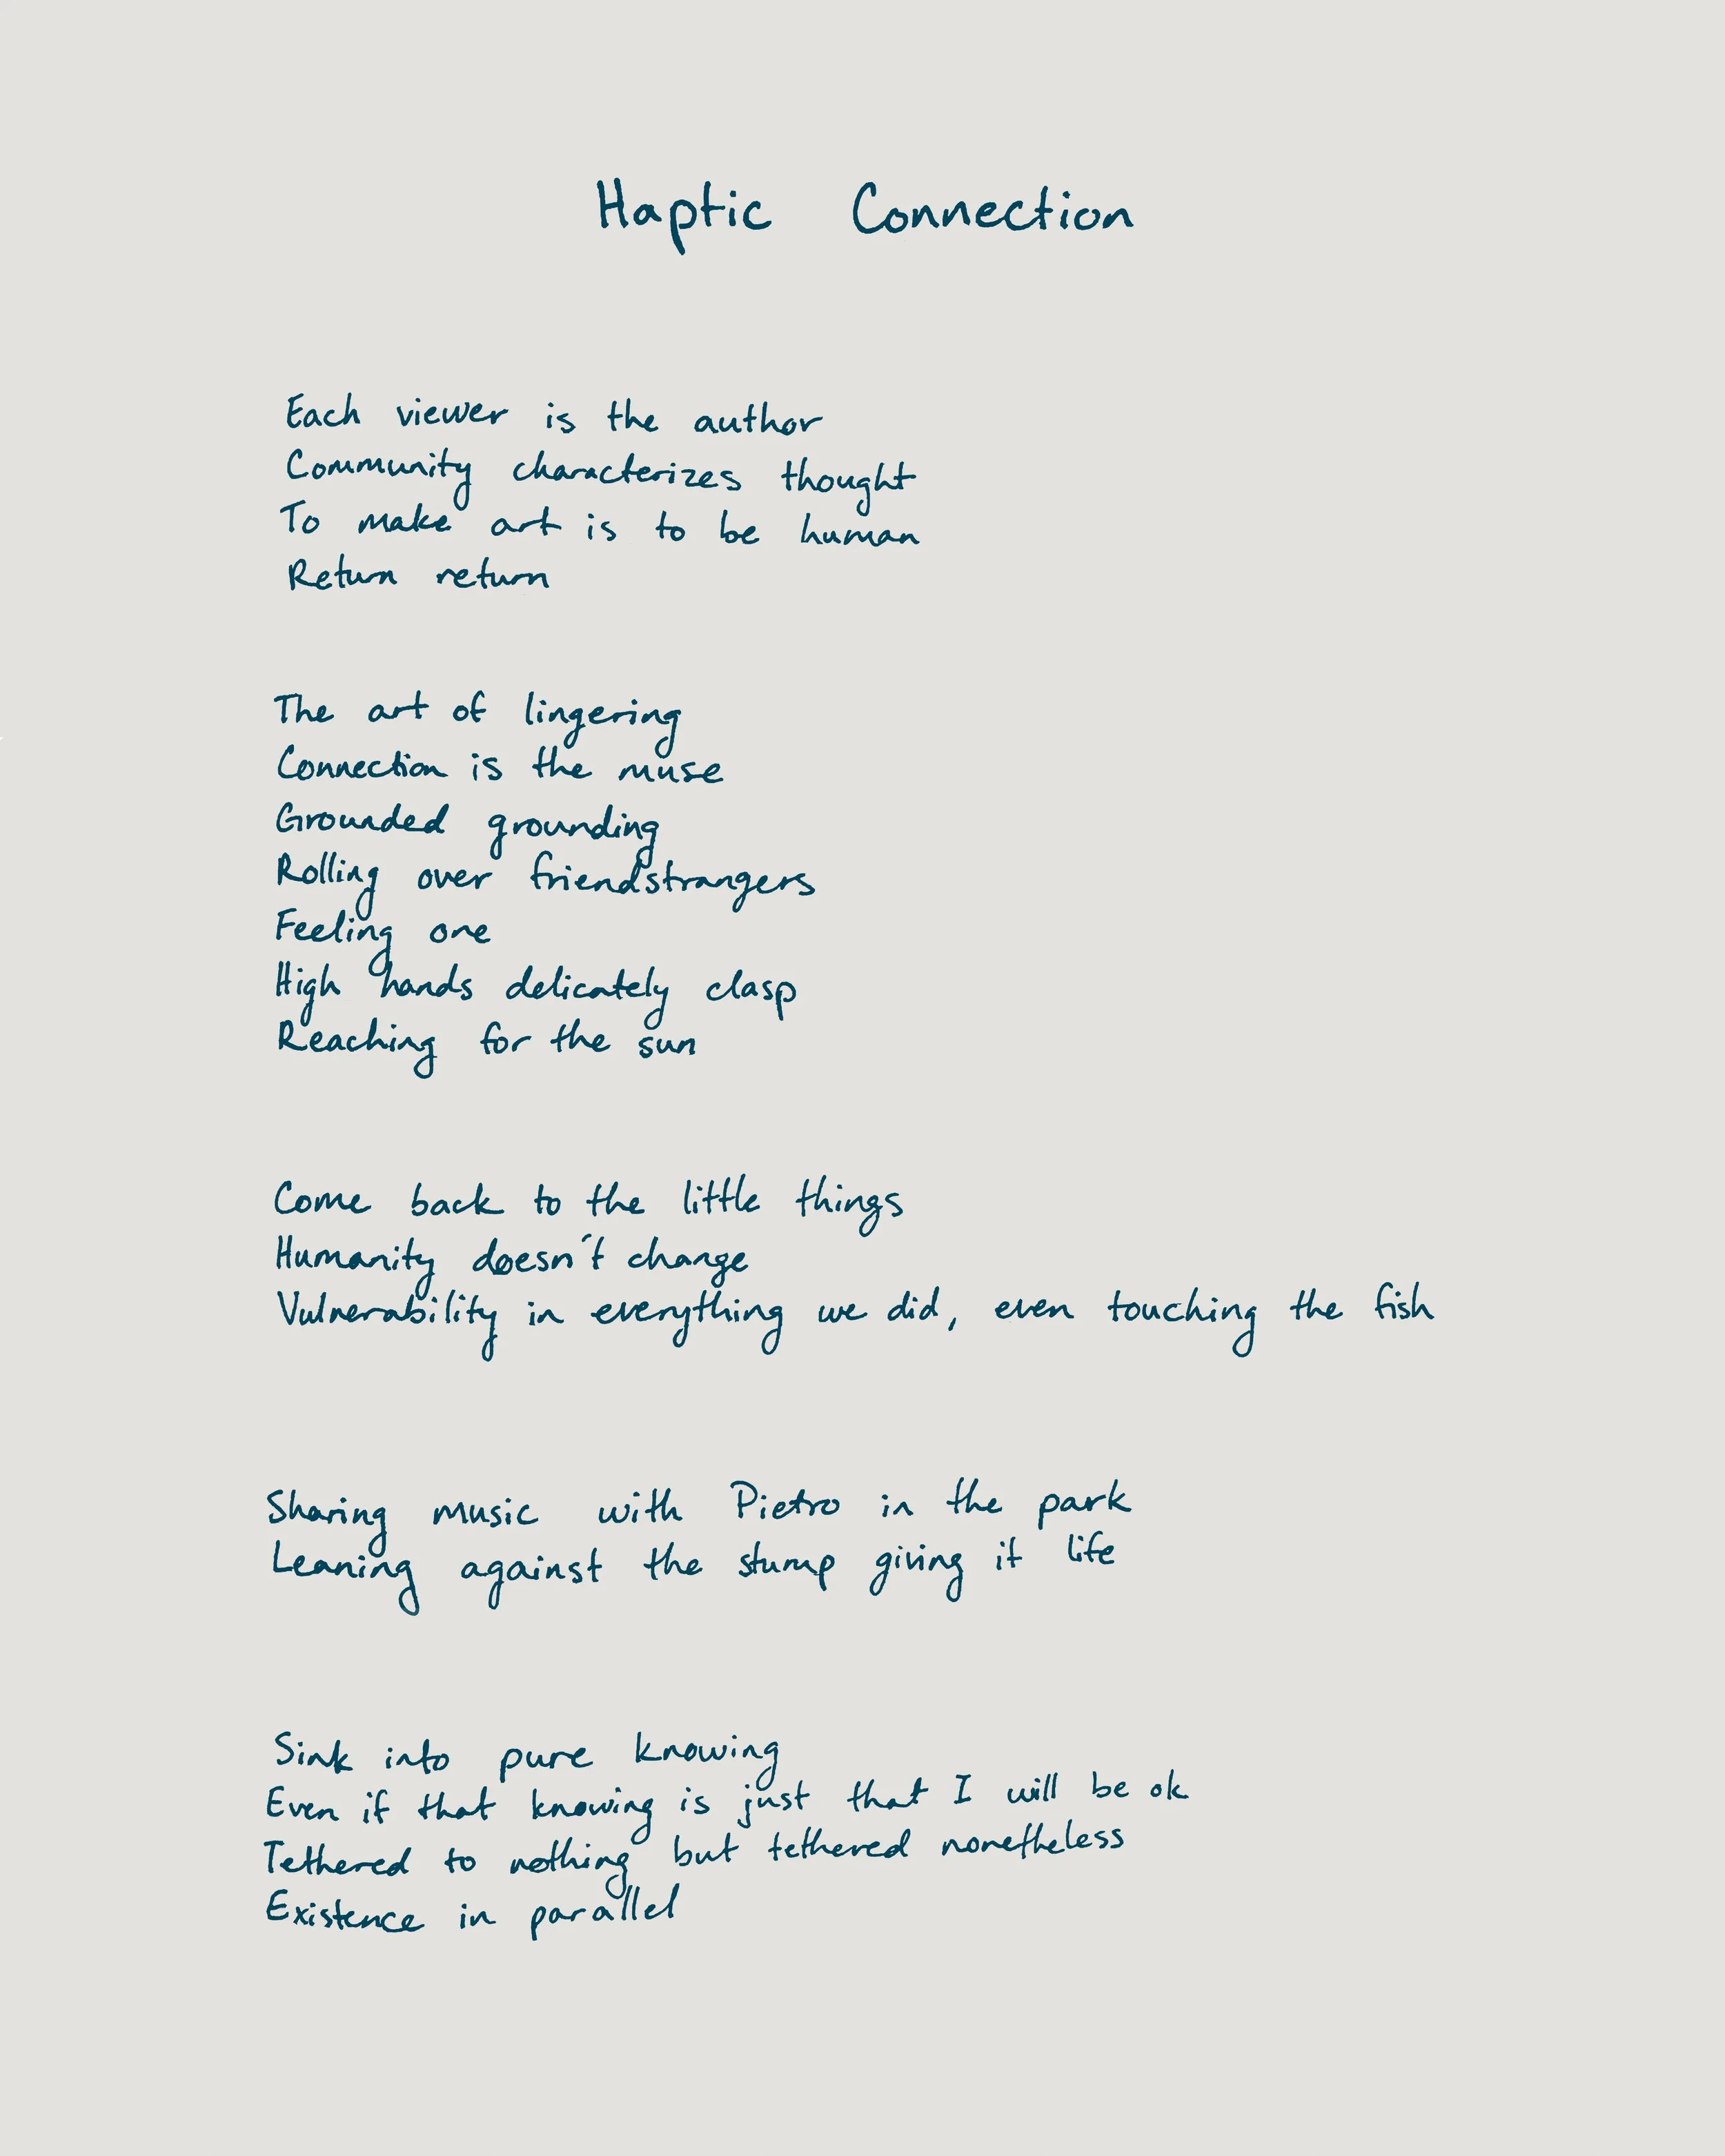 Haptic Connection
Each viewer is the author
Community characterizes thought
To make art is to be human
Return return
The art of lingering
Connection is the muse
Grounded grounding
Rolling over friendstrangers
Feeling one
High hands delicately clasp
Reaching for the sun
Come back to the little things
Humanity doesn't change
Vulnerability in everything we did, even touching the fish
Sharing music with Pietro in the park
Leaning against the stump giving it life
Sink into pure knowing
Even if that knowing is just that I will be ok
Tethered to nothing but tethered nonetheless
Existence in parallel